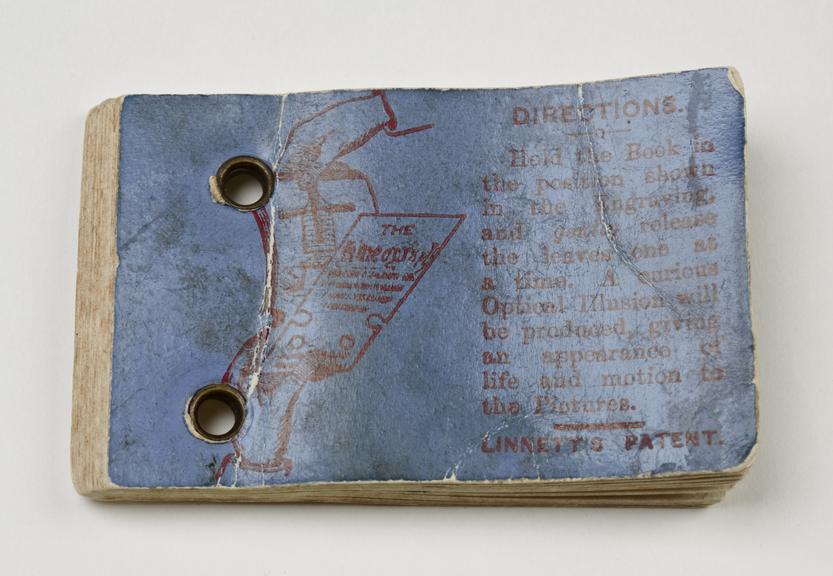 THE
Kineograph
DIRECTIONS.
Hold the Book in
the position shown
in the Engraving,
and gently release
the leaves one at
a time. A curious
Optical Illusion will
be produced, giving
an appearance of
life and motion to
the Pictures.
LINNETT'S PATENT.